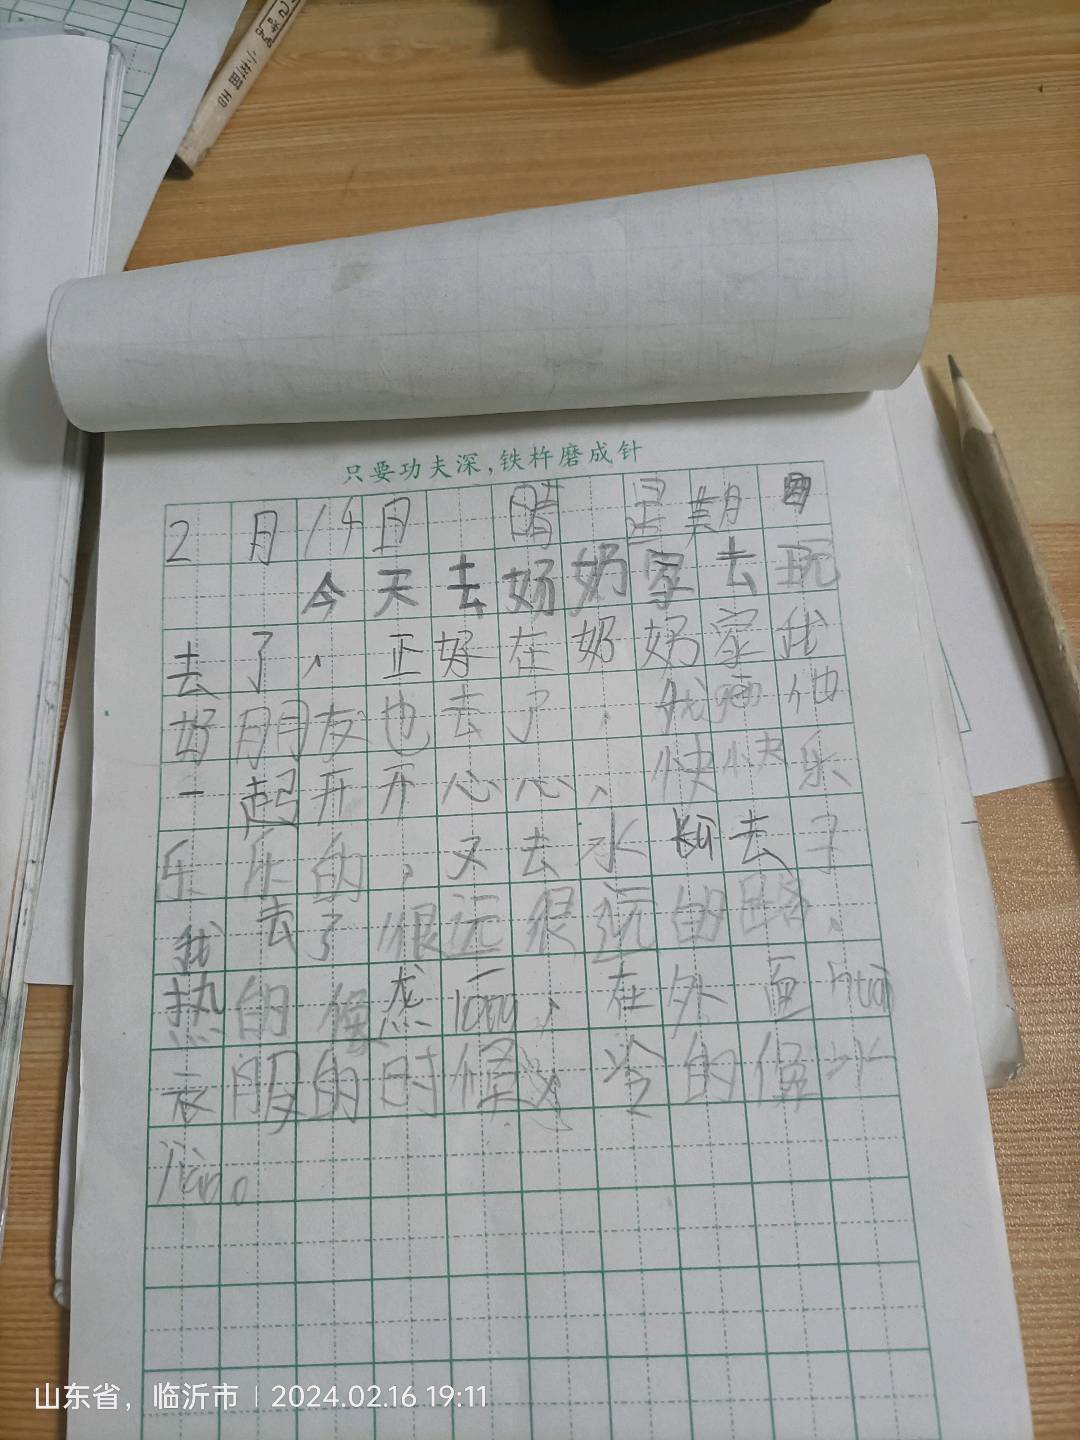 只要功夫深,铁杵磨成针
2月14日 晴 星期四
今天去奶奶家去玩
去了，正好在奶奶家我
好朋友也去了，我和他
一起开开心心，快快乐
乐乐的，又去水ku去了
我去了很远很远的路，
热的候long，在外面
衣服的时候，冷的候
山东省，临沂市 | 2024.02.16 19:11